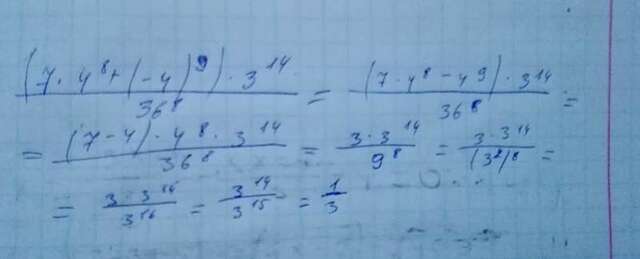 (7 · 4⁸ + (-4)⁹) · 3¹⁴ / 36⁸ = (7 · 4⁸ - 4⁹) · 3¹⁴ / 36⁸ =
= (7 - 4) · 4⁸ · 3¹⁴ / 36⁸ = 3 · 3¹⁴ / 9⁸ = 3 · 3¹⁴ / (3²)⁸ =
= 3 · 3¹⁴ / 3¹⁶ = 3¹⁴ / 3¹⁵ = 1 / 3